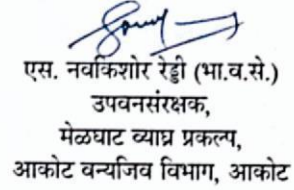 एस. नवकिशोर रेड्डी (भा.व.से.)
उपवनसंरक्षक,
मेळघाट व्याघ्र प्रकल्प,
आकोट वन्यजिव विभाग, आकोट